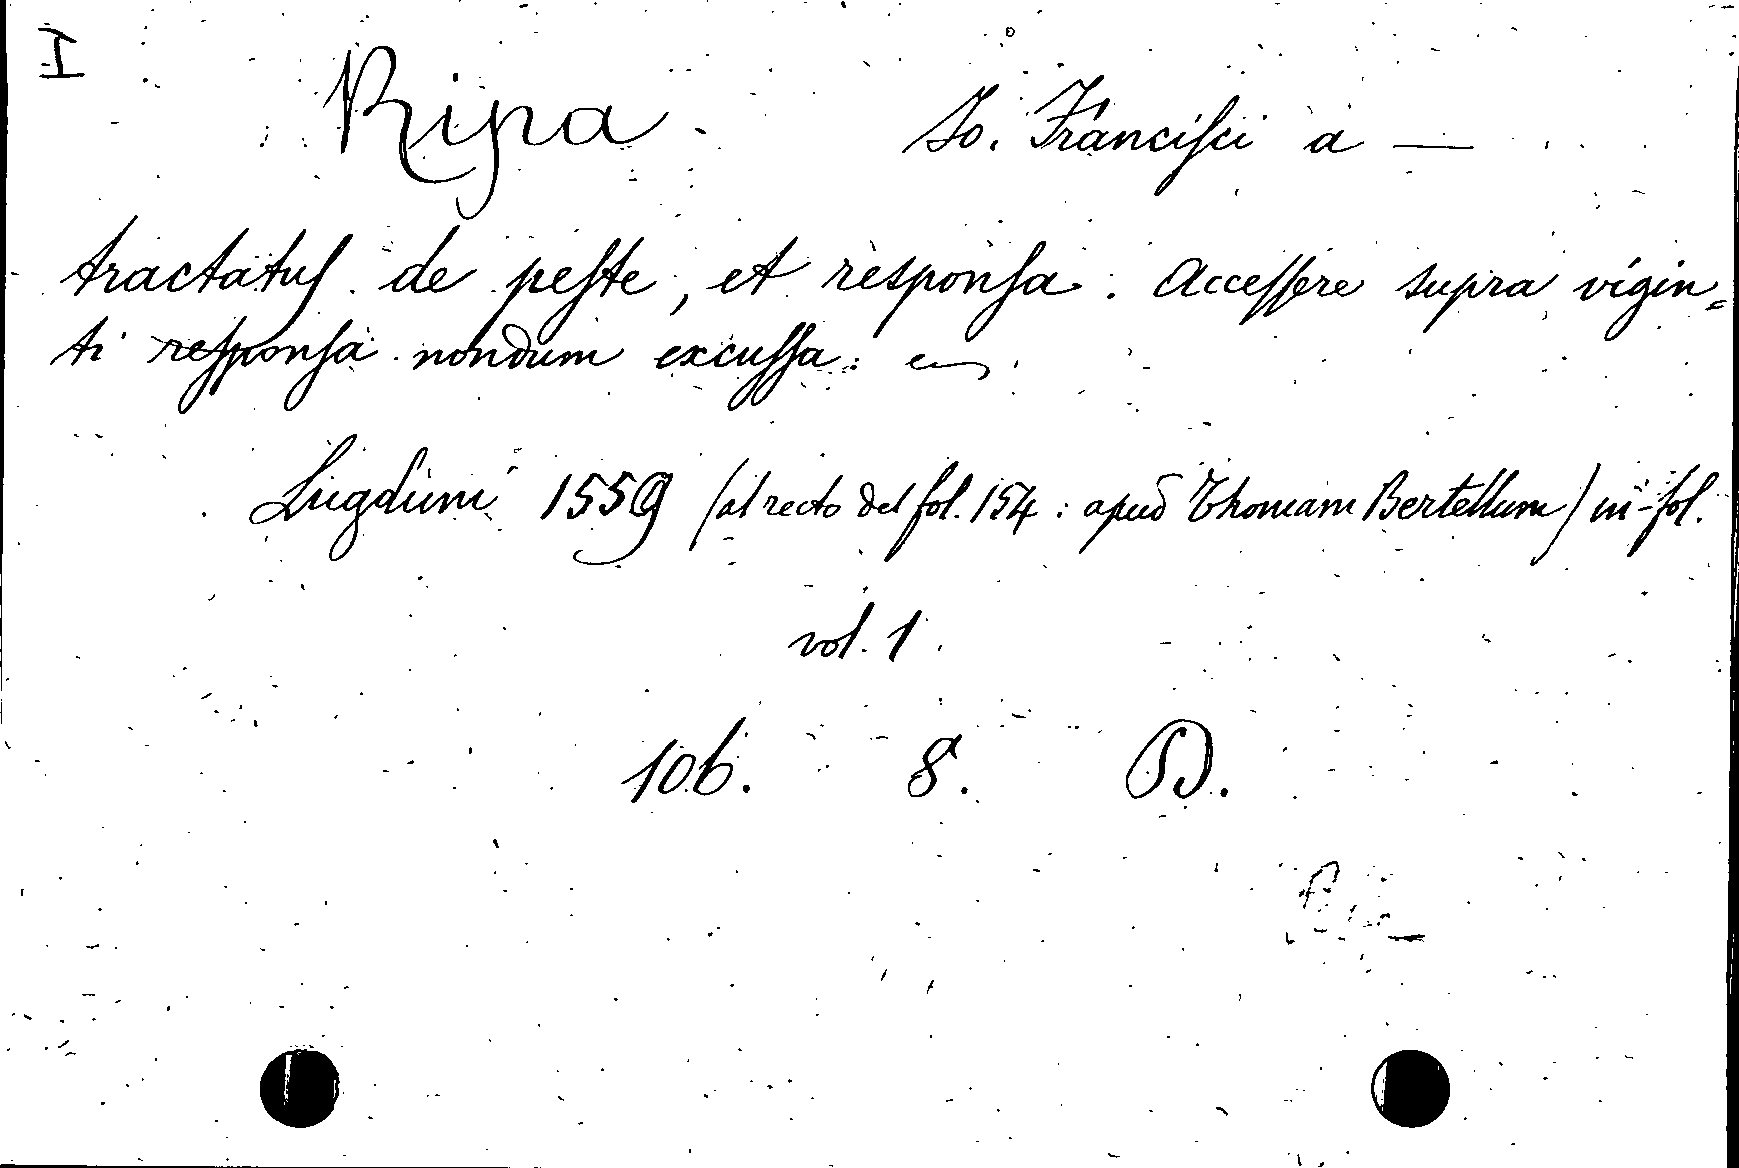 I
Ripa. Io. Francisci a —
tractatus de peste, et responsa. Accessere supra vigin=
ti responsa nondum excussa.
Lugduni 1559 (al recto del fol. 154: apud Thomam Bertellum) in-fol.
vol. 1.
106. 8. D.